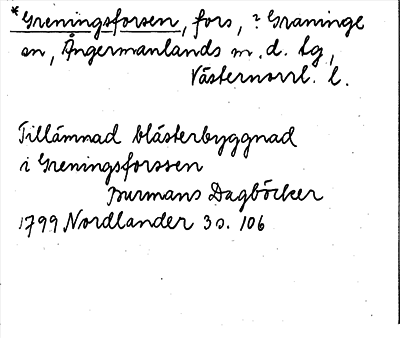 *Greningsforsen, fors, ? Graninge
sn, Ångermanlands m. d. tg,
Västernorrl. l.
Tillämnad blästerbyggnad
i Greningsforssen
Burmans Dagböcker
1799 Nordlander 3 s. 106